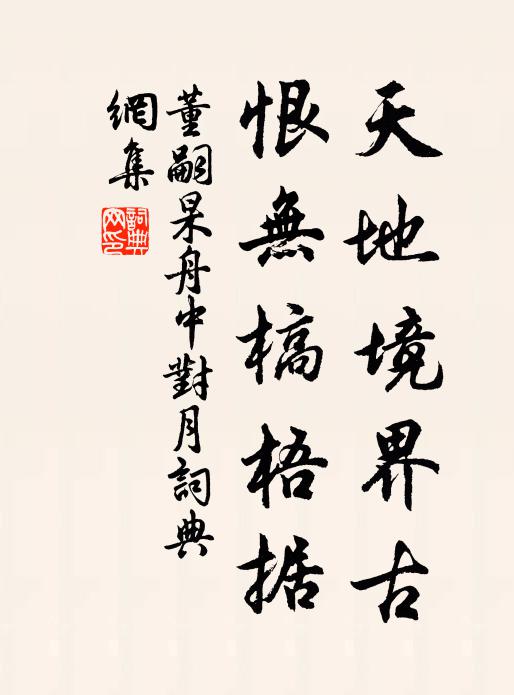 天地境界古
恨無槁梧据
董嗣杲舟中對月詞典
網集
詞典網印